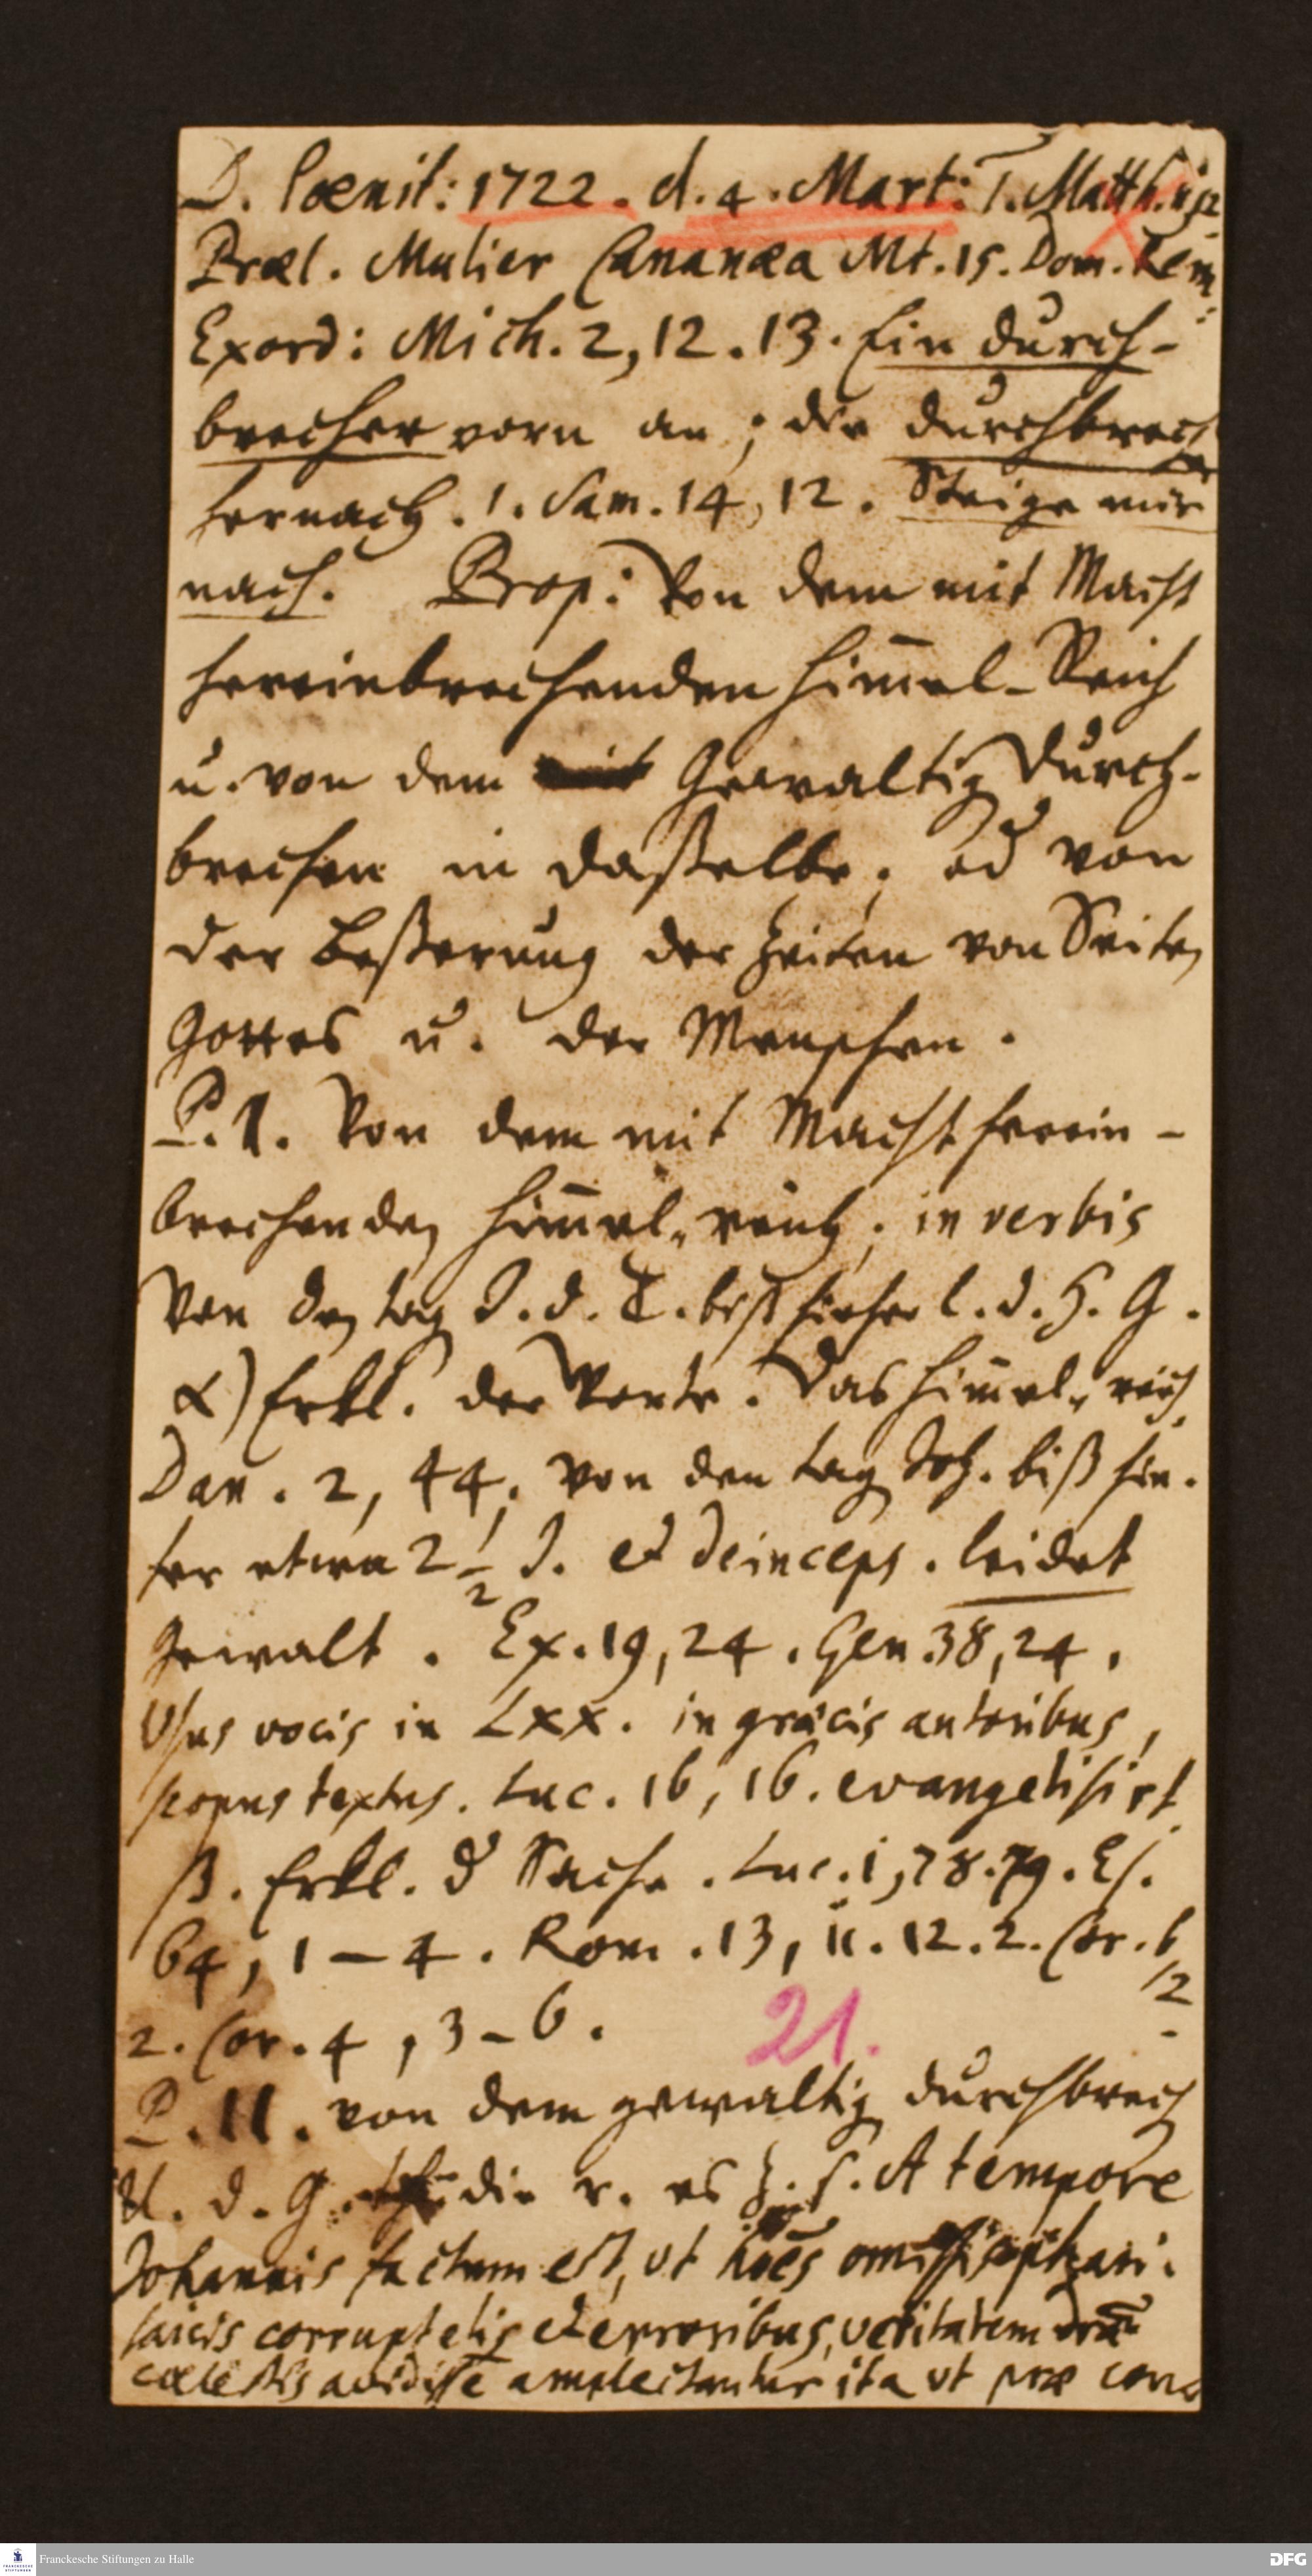 D. Poenit: 1722. d. 4. Mart: T. Matth. 11, 12
Præl. Mulier Cananæa Mt. 15. Dom. Rem:
Exord: Mich. 2, 12. 13. Ein durch-
brecher vorn an; die durchbrech
hernach. 1. Sam. 14, 12. Steige mir
nach. Prop: Von dem mit Macht
hereinbrechenden Him̅el-Reich
u. von dem Gewaltig Durch-
brechen in dasselbe; od von
der Beßerung der Zeiten von Seiten
Gottes u. der Menschen.
P. I. Von dem mit Macht herein-
brechenden Him̅el-reich; in verbis
Von den tag J. d. T. biß hieher l. d. H. G.
α) Erkl. der Worte. Das Him̅el-reich
Dan. 2, 44. von den tag Joh. biß hie-
her etwa 2 1/2 J. et deinceps. leidet
Gewalt. Ex. 19, 24. Gen 38, 24.
Usus vocis in LXX. in græcis autoribus,
scopus textus. Luc. 16, 16. evangelisirt
β. Erkl. d Sache. Luc. 1, 78. 79. Es.
64, 1-4. Rom. 13, 11. 12. 2. Cor. 6
/2
2. Cor. 4, 3-6. 21.
P. II. von dem gewaltig durchbrech
U. d. G. die r. es z. s. A tempore
Johannis factum est, ut hoēs omissis phari-
saicis corruptelis et erroribus, veritatem
cœlestis avidisse amplectantur ita ut præ
Franckesche Stiftungen zu Halle
DFG